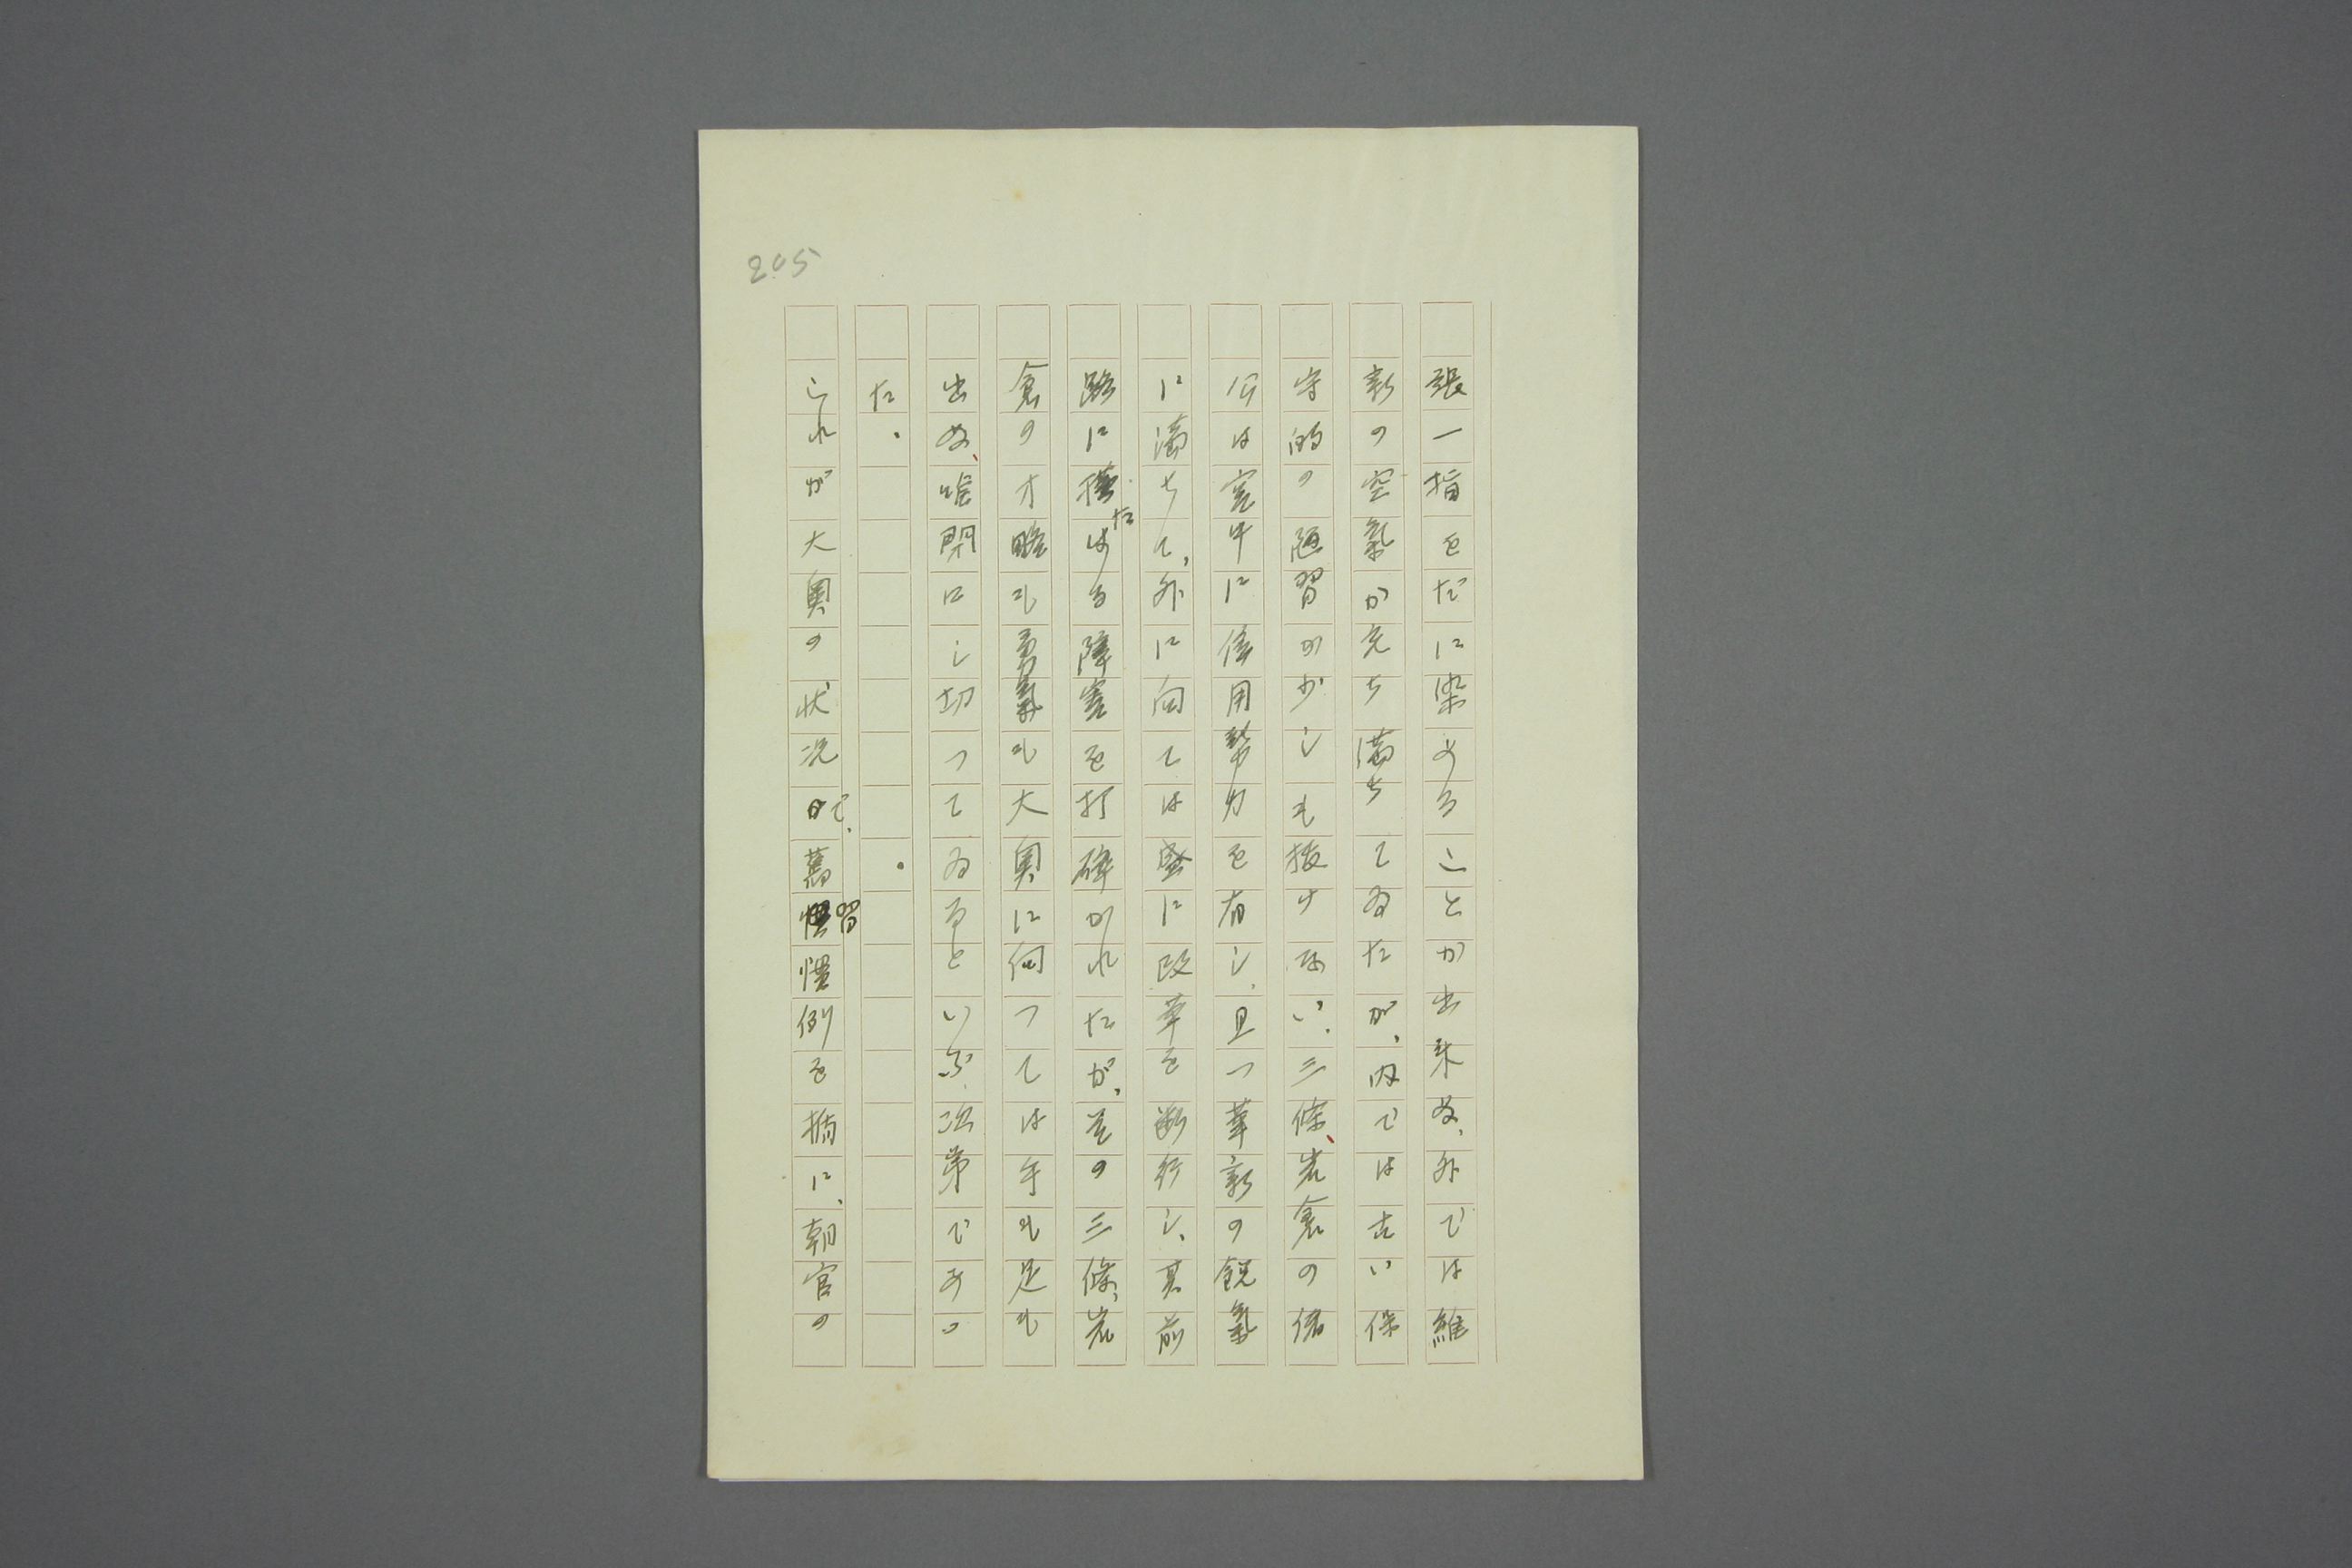 205
張一指をだに染めることか出来ぬ、外では維
新の空氣か充ち満ちてゐたが、内では古い保
守的の陋習が少しも抜けない、三條、岩倉の諸
公は宮中に信用勢力を有し、且つ革新の鋭氣
に満ちて、外に向ては盛に改革を断行し、其前
路に横たはる障害を打碎かれたが、其の三條、岩
倉の才膽も勇氣も大奥に向つては手も足も
出ぬ、唯閉口し切つてゐるといふ次第であつ
た。
これが大奥の状況で、舊習慣例を楯に、朝官の